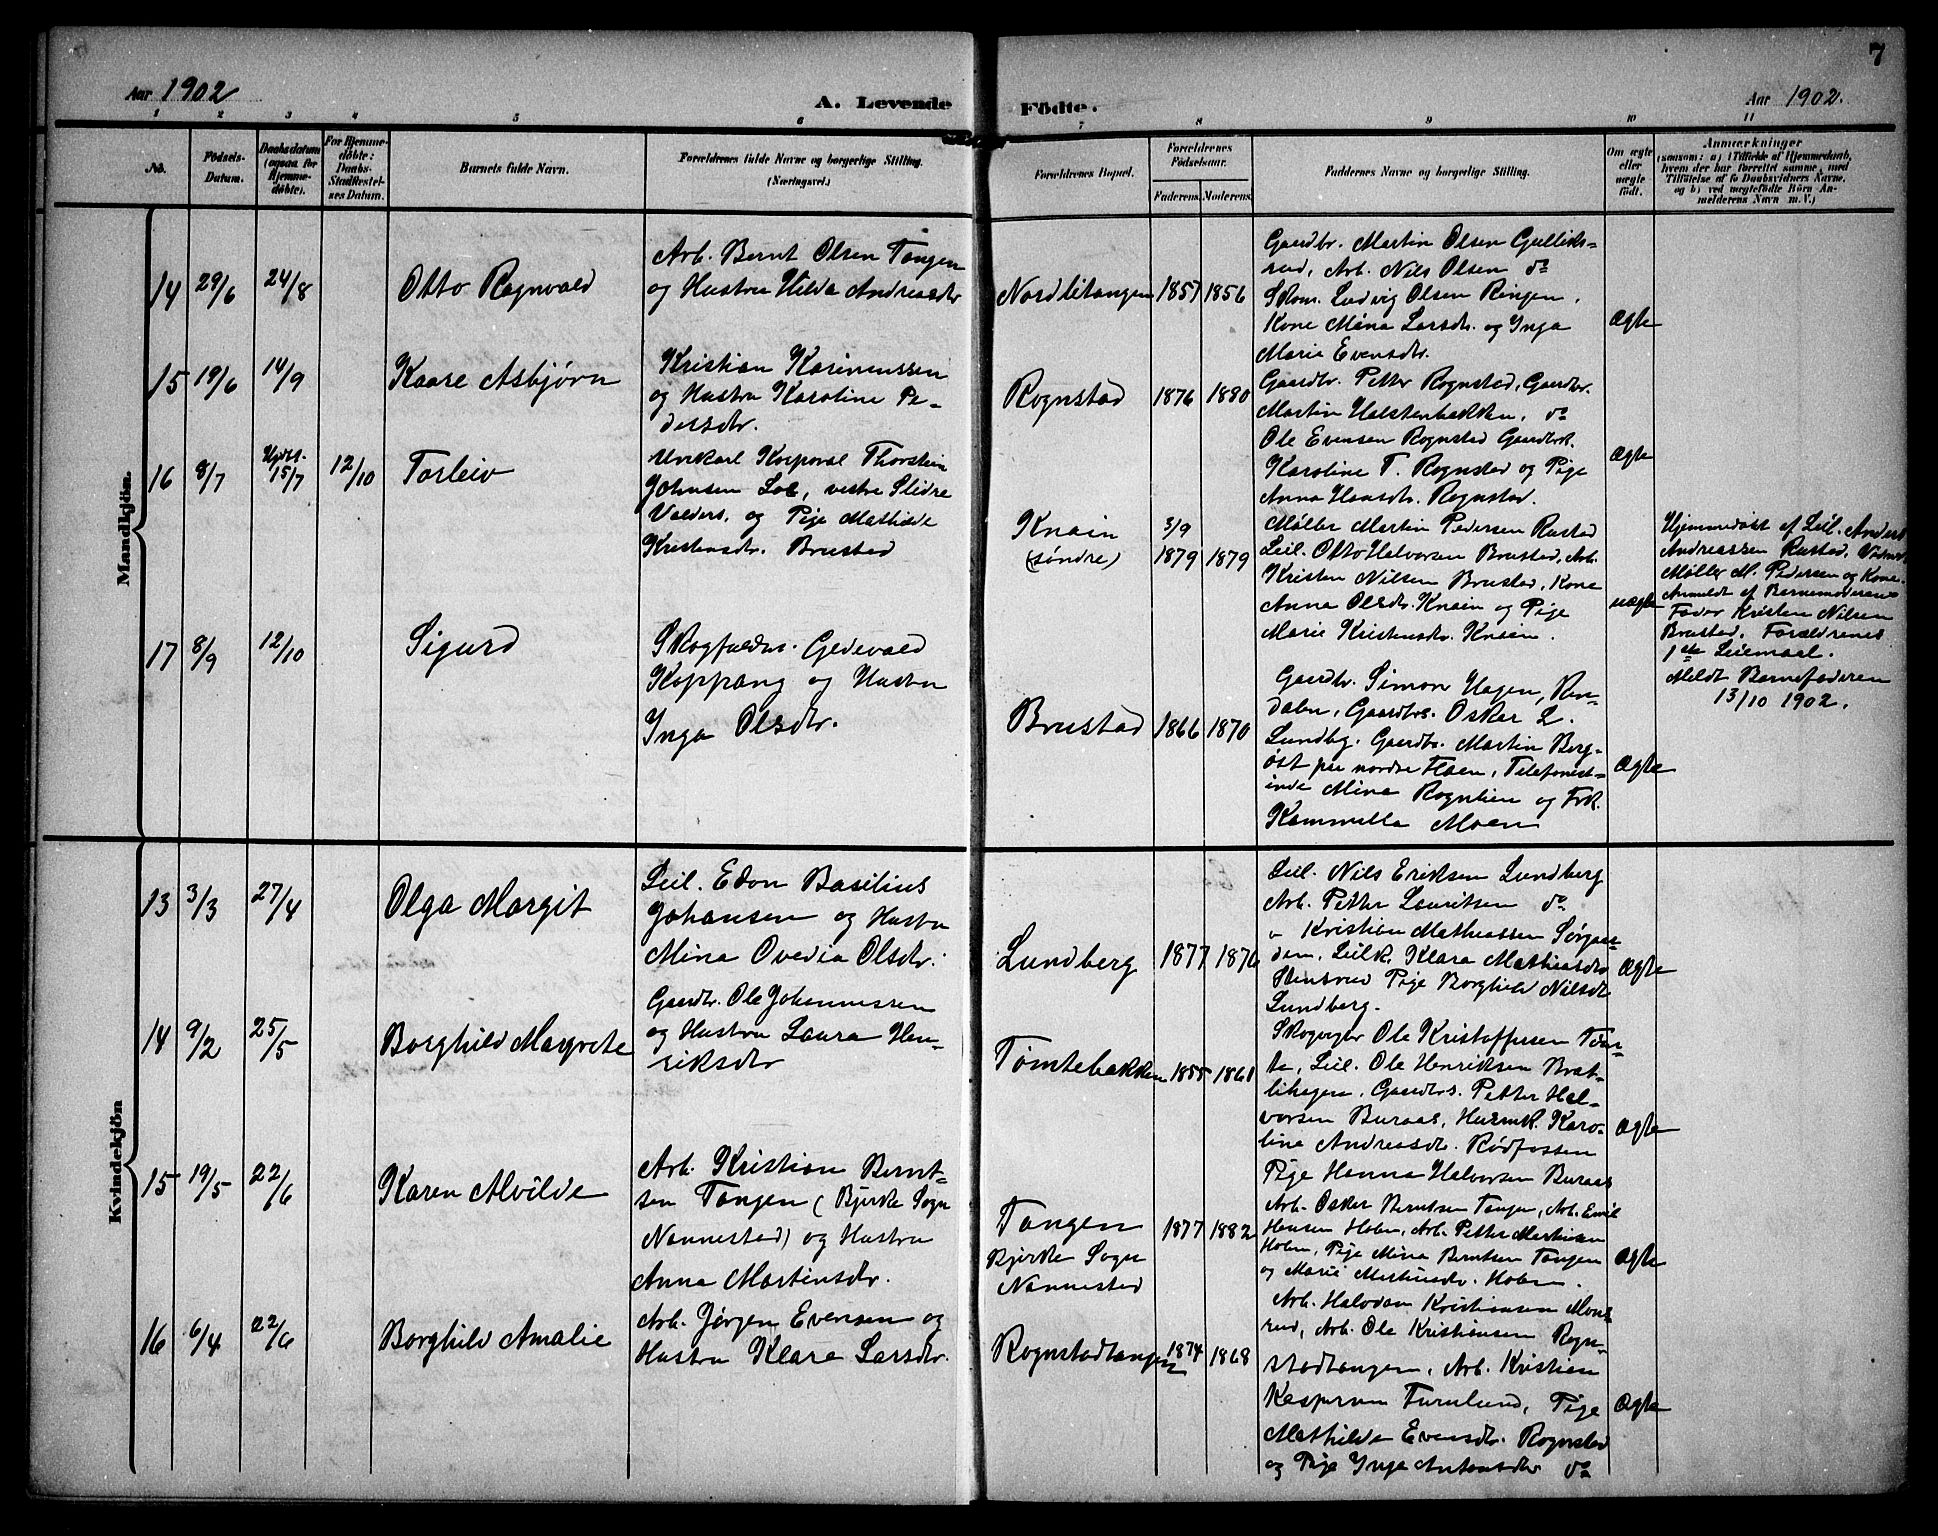 7
Aar 1902
A. Levende
Födte.
Aar 1902.
1 2 3 4 5 6 7 8 9 10 11
No.
Födsels-
Datum.
Daabsdatum
(ogsaa for
Hjemme-
døbte).
For Hjemme-
døbte:
Daabs-
Stadfæstel-
ses Datum.
Barnets fulde Navn.
Forældrenes fulde Navne og borgerlige Stilling.
(Næringsvei.)
Forældrenes Bopæl.
Forældrenes
Födselsaar.
Faderens. Moderens.
Faddernes Navne og borgerlige Stilling.
Om ægte
eller
uægte
födt.
Anmærkninger
(saasom: a) i Tilfælde af Hjemmedaab,
hvem der har forrettet samme, med
Tilföielse af to Daabsvidners Navne,
og b) ved uægtefödte Börn An-
melderens Navn m. V.)
Mandkjön.
14 29/6 24/8
Otto Ragnvald
Arb. Bernt Olsen Tangen
og Hustru Hilda Andreasdtr
Nordlitangen 1857 1856
Gaardbr. Martin Olsen Gulliks-
rud, Arb. Nils Olsen do
Skom. Ludvig Olsen Ringen,
Kone Mina Larsdtr. og Inga
Marie Evensdtr.
Ægte
15 19/6 14/9
Kaare Asbjørn
Kristian Rasmussen
og Hustru Karoline Pe-
dersdtr.
Rognstad 1876 1880
Gaardbr. Petter Rognstad, Gaardbr.
Martin Holstenbakken, do
Ole Evensen Rognstad Gaardbrk.
Karoline T. Rognstad og Pige
Anna Hansdtr. Rognstad.
Ægte
16 8/7 Hjdbt. 15/7 12/10
Torleiv
Ungkarl Korporal Thorstein
Johnsen Loe, vestre Slidre
Valders, og Pige Mathilde
Kristensdtr. Brustad
Knain
(søndre)
3/9
1879 1879
Møller Martin Pedersen Rustad
Leil. Otto Halvorsen Brustad, Arb.
Kristen Nilsen Brustad, Kone
Anna Olsdtr. Knain og Pige
Marie Kristensdtr. Knain.
uægte
Hjemmedøbt af Leil. Anders
Andreassen Rustad. Vidner
Møller M. Pedersen og Kone.
Anmeldt af Barnemoderens
Fader Kristen Nilsen
Brustad. Forældrenes
1ste Leiemaal.
Meldt Barnefaderen
13/10 1902.
17 8/9 12/10
Sigurd
Skogfuldm. Gedevald
Koppang og Hustru
Inga Olsdtr.
Brustad 1866 1870
Gaardbr. Simon Hagen, Ren-
dalen, Gaardbrs. Oskar L.
Lundby. Gaardbr. Martin Berg-
øst paa nordre Hoen, Telefonist-
inde Mina Rognlien og Frk.
Kammilla Moen
Ægte
Kvindekjön
13 3/3 27/4
Olga Margit
Leil. Edon Basilius
Johansen og Hustru
Mina Ovedia Olsdtr.
Lundberg 1877 1876
Leil. Nils Eriksen Lundberg
Arb. Petter Lauritsen do
" Kristian Mathiassen Sørgaar-
den, Leilk. Klara Mathiasdtr
Stensrud Pige Borghild Nilsdtr
Lundberg.
Ægte
14 9/2 25/5
Borghild Margrete
Gaardbr. Ole Johannessen
og Hustru Laura Hen-
riksdtr
Tømtebakken 1855 1861
Skogvogter Ole Kristoffersen Tøm-
te, Leil. Ole Henriksen Bræt-
lihagen, Gaardbrs. Petter Hal-
vorsen Buraas, Husmk. Karo-
lina Andreasdtr. Rødfossen
Pige Hanna Halvorsen Buraas
Ægte
15 19/5 22/6
Karen Alvilde
Arb. Kristian Bernt-
sen Tangen (Bjerke Sogn
Nannestad) og Hustru
Anna Martinsdtr.
Tangen
Bjerke Sogn
Nannestad
1877 1882
Arb. Oskar Berntsen Tangen, Arb. Emil
Hansen Holm, Arb. Petter Martinsen
Holm, Pige Mina Berntsen Tangen
og Marie Martinsdtr. Holm.
Ægte
16 6/4 22/6
Borghild Amalie
Arb. Jørgen Evensen og
Hustru Klara Larsdtr.
Rognstadtangen 1874 1868
Arb. Halvdan Kristiansen Mons-
rud, Arb. Ole Kristiansen Rogn-
stadtangen, Arb. Kristian
Kaspersen Furulund, Pige
Mathilde Evensdtr. Rognstad
og Pige Inga Antonsdtr do
Ægte